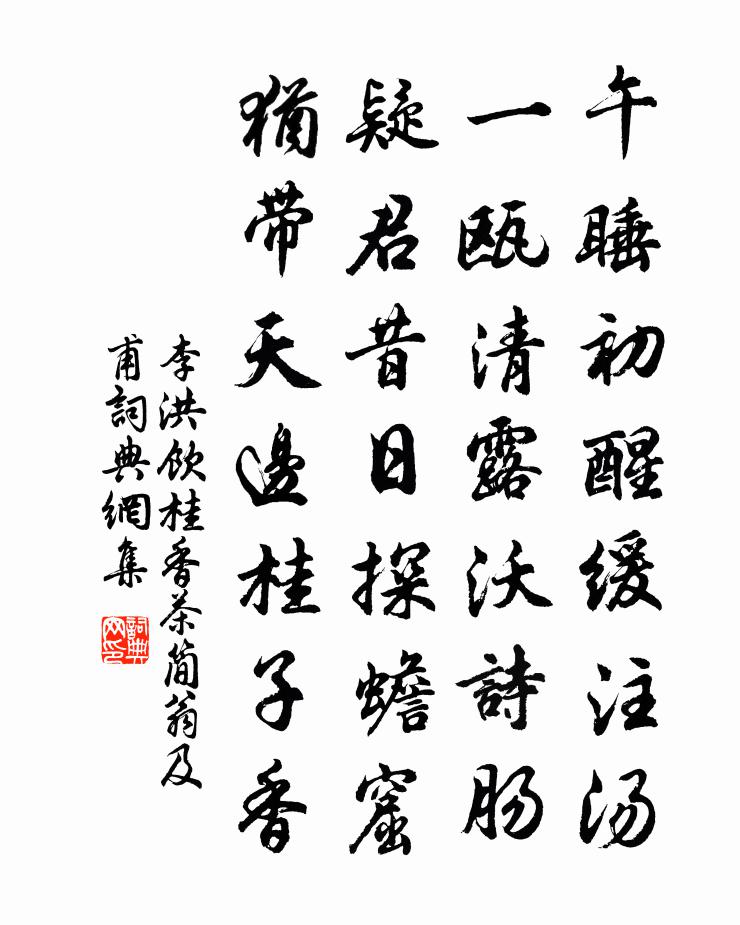 午睡初醒緩注湯
一甌清露沃詩腸
疑君昔日探蟾窟
猶帶天邊桂子香
李洪飲桂香茶簡翁及
甫詞典網集
詞典網印